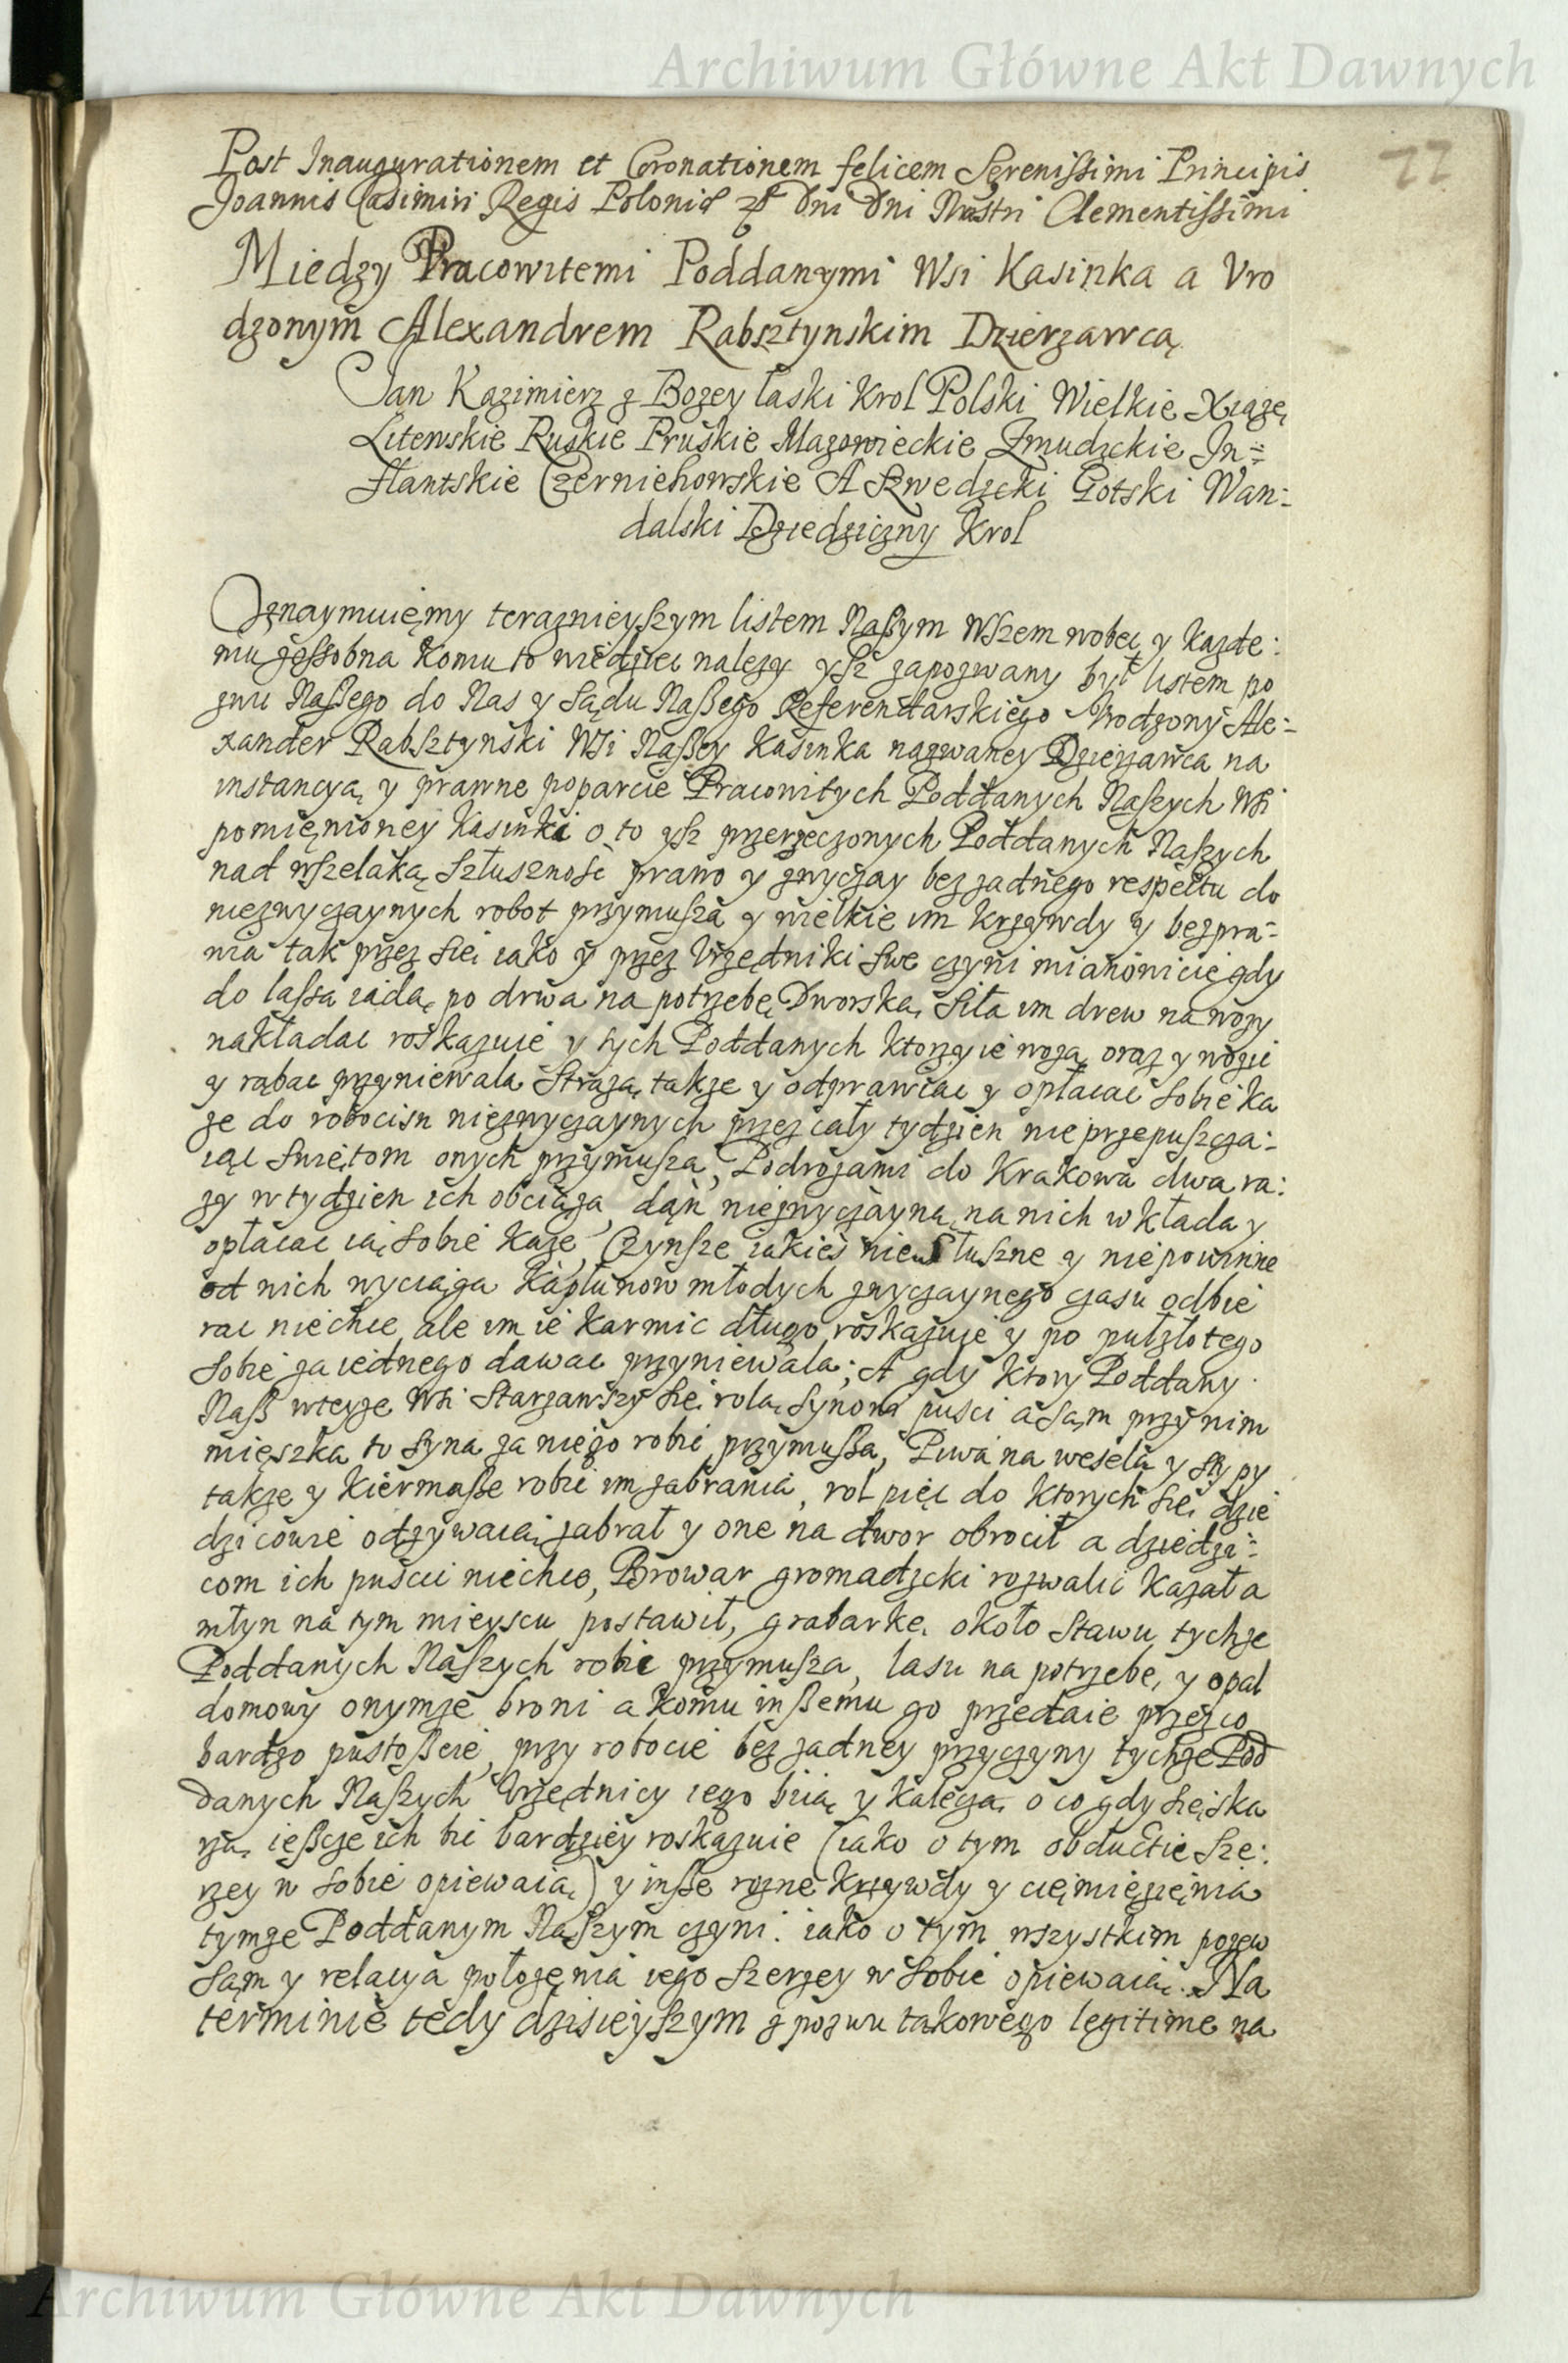 Archiwum Główne Akt Dawnych
77
Post Inaugurationem et Coronationem felicem Serenißimi Principis
Joannis Casimiri Regis Poloniæ Dni Dni Nostri Clementißimi
Miedzy Pracowitemi Poddanymi Wsi Kasinka a Vro
dzonym Alexandrem Rabsztynskim Dzierzawcą
Jan Kazimierz z Bozey łaski Krol Polski Wielkie Xiązę
Litewskie Ruskie Pruskie Mazowieckie Zmudzckie In=
flantskie Czerniehowskie A Szwedzcki Gotski Wan:
dalski Dziedziczny Krol
Oznaymuięmy teraznieyszym listem Naßym Wszem wobec y kazde:
mu zoßobna komu to wiedziec nalezy ysz zapozwany był listem po
zwu Naßego do Nas y Sądu Naßego Referendarskiego Vrodzony Ale:
xander Rabsztynski Wsi Naßey Kasinka nazwaney Dzierzawca na
instancyą y prawne poparcie Pracowitych Poddanych Naszych Wsi
pomięnioney Kasinki o to ysz przerzeczonych Poddanych Naszych
nad wszelaką Szłusznosc prawo y zwyczay bez zadnego respectu do
niezwyczaynych robot przymusza y wielkie im krzywdy y bezpra=
wia tak przez się iako y przez Vrzędniki Swe czyni mianowicie gdy
do lassa iadą po drwa na potrzebę Dworską Siła im drew na wozy
nakładac roskazuie y tych Poddanych ktorzy ie wozą oraz y wozic
y rąbac przyniewala Strazą takze y odprawiac y opłacac sobie ka
ze do robocizn niezwyczaynych przez cały tydzien nie przepuszcza:
iąc Swiętom onych przymusza, Podrozami do Krakowa dwa ra:
zy w tydzien ich obciąza, dąn niezwyczayną na nich wkłada y
opłacac ią sobie kaze, Czynsze iakies niesłuszne y niepowinne
od nich wyciąga Kapłunow młodych zwyczaynego czasu odbie
rac niechce ale im ie karmic długo roskazuie y po pułzłotego
sobie za iednego dawac przyniewala; A gdy ktory Poddany
Naß wteyze Wsi Starzawszy się rolą Synowi pusci a sąm przy nim
mięszka to Syna za niego robic przymusza, Piwa na wesela y stypy
takze y kiermaße robic im zabrania, rol pięc do ktorych się dzie
dzicowie odzywaią zabrał y one na dwor obrocił a dziedzi:
com ich puscic niechce, Browar gromadzcki rozwalic kazał a
młyn na tym mieyscu postawił, grabarkę około Stawu tychze
Poddanych Naszych robic przymusza, lasu na potrzebę y opał
domowy onymze broni a komu inßemu go przedaie przez co
bardzo pustoßeie, przy robocie bez zadney przyczyny tychze Pod
danych Naszych Vrzędnicy iego biią y kaleczą o co gdy się ska
rzą ießcze ich bic bardziey roskazuie (iako o tym obductie sze:
rzey w sobie opiewaią) y inße rozne krzywdy y cięmięzięnia
tymze Poddanym Naszym czyni. iako o tym wszystkim pozew
sąm y relacya połozęnia iego szerzey w sobie opiewaią. Na
terminie tedy dzisieyszym z pozwu takowego legitime na
Archiwum Główne Akt Dawnych